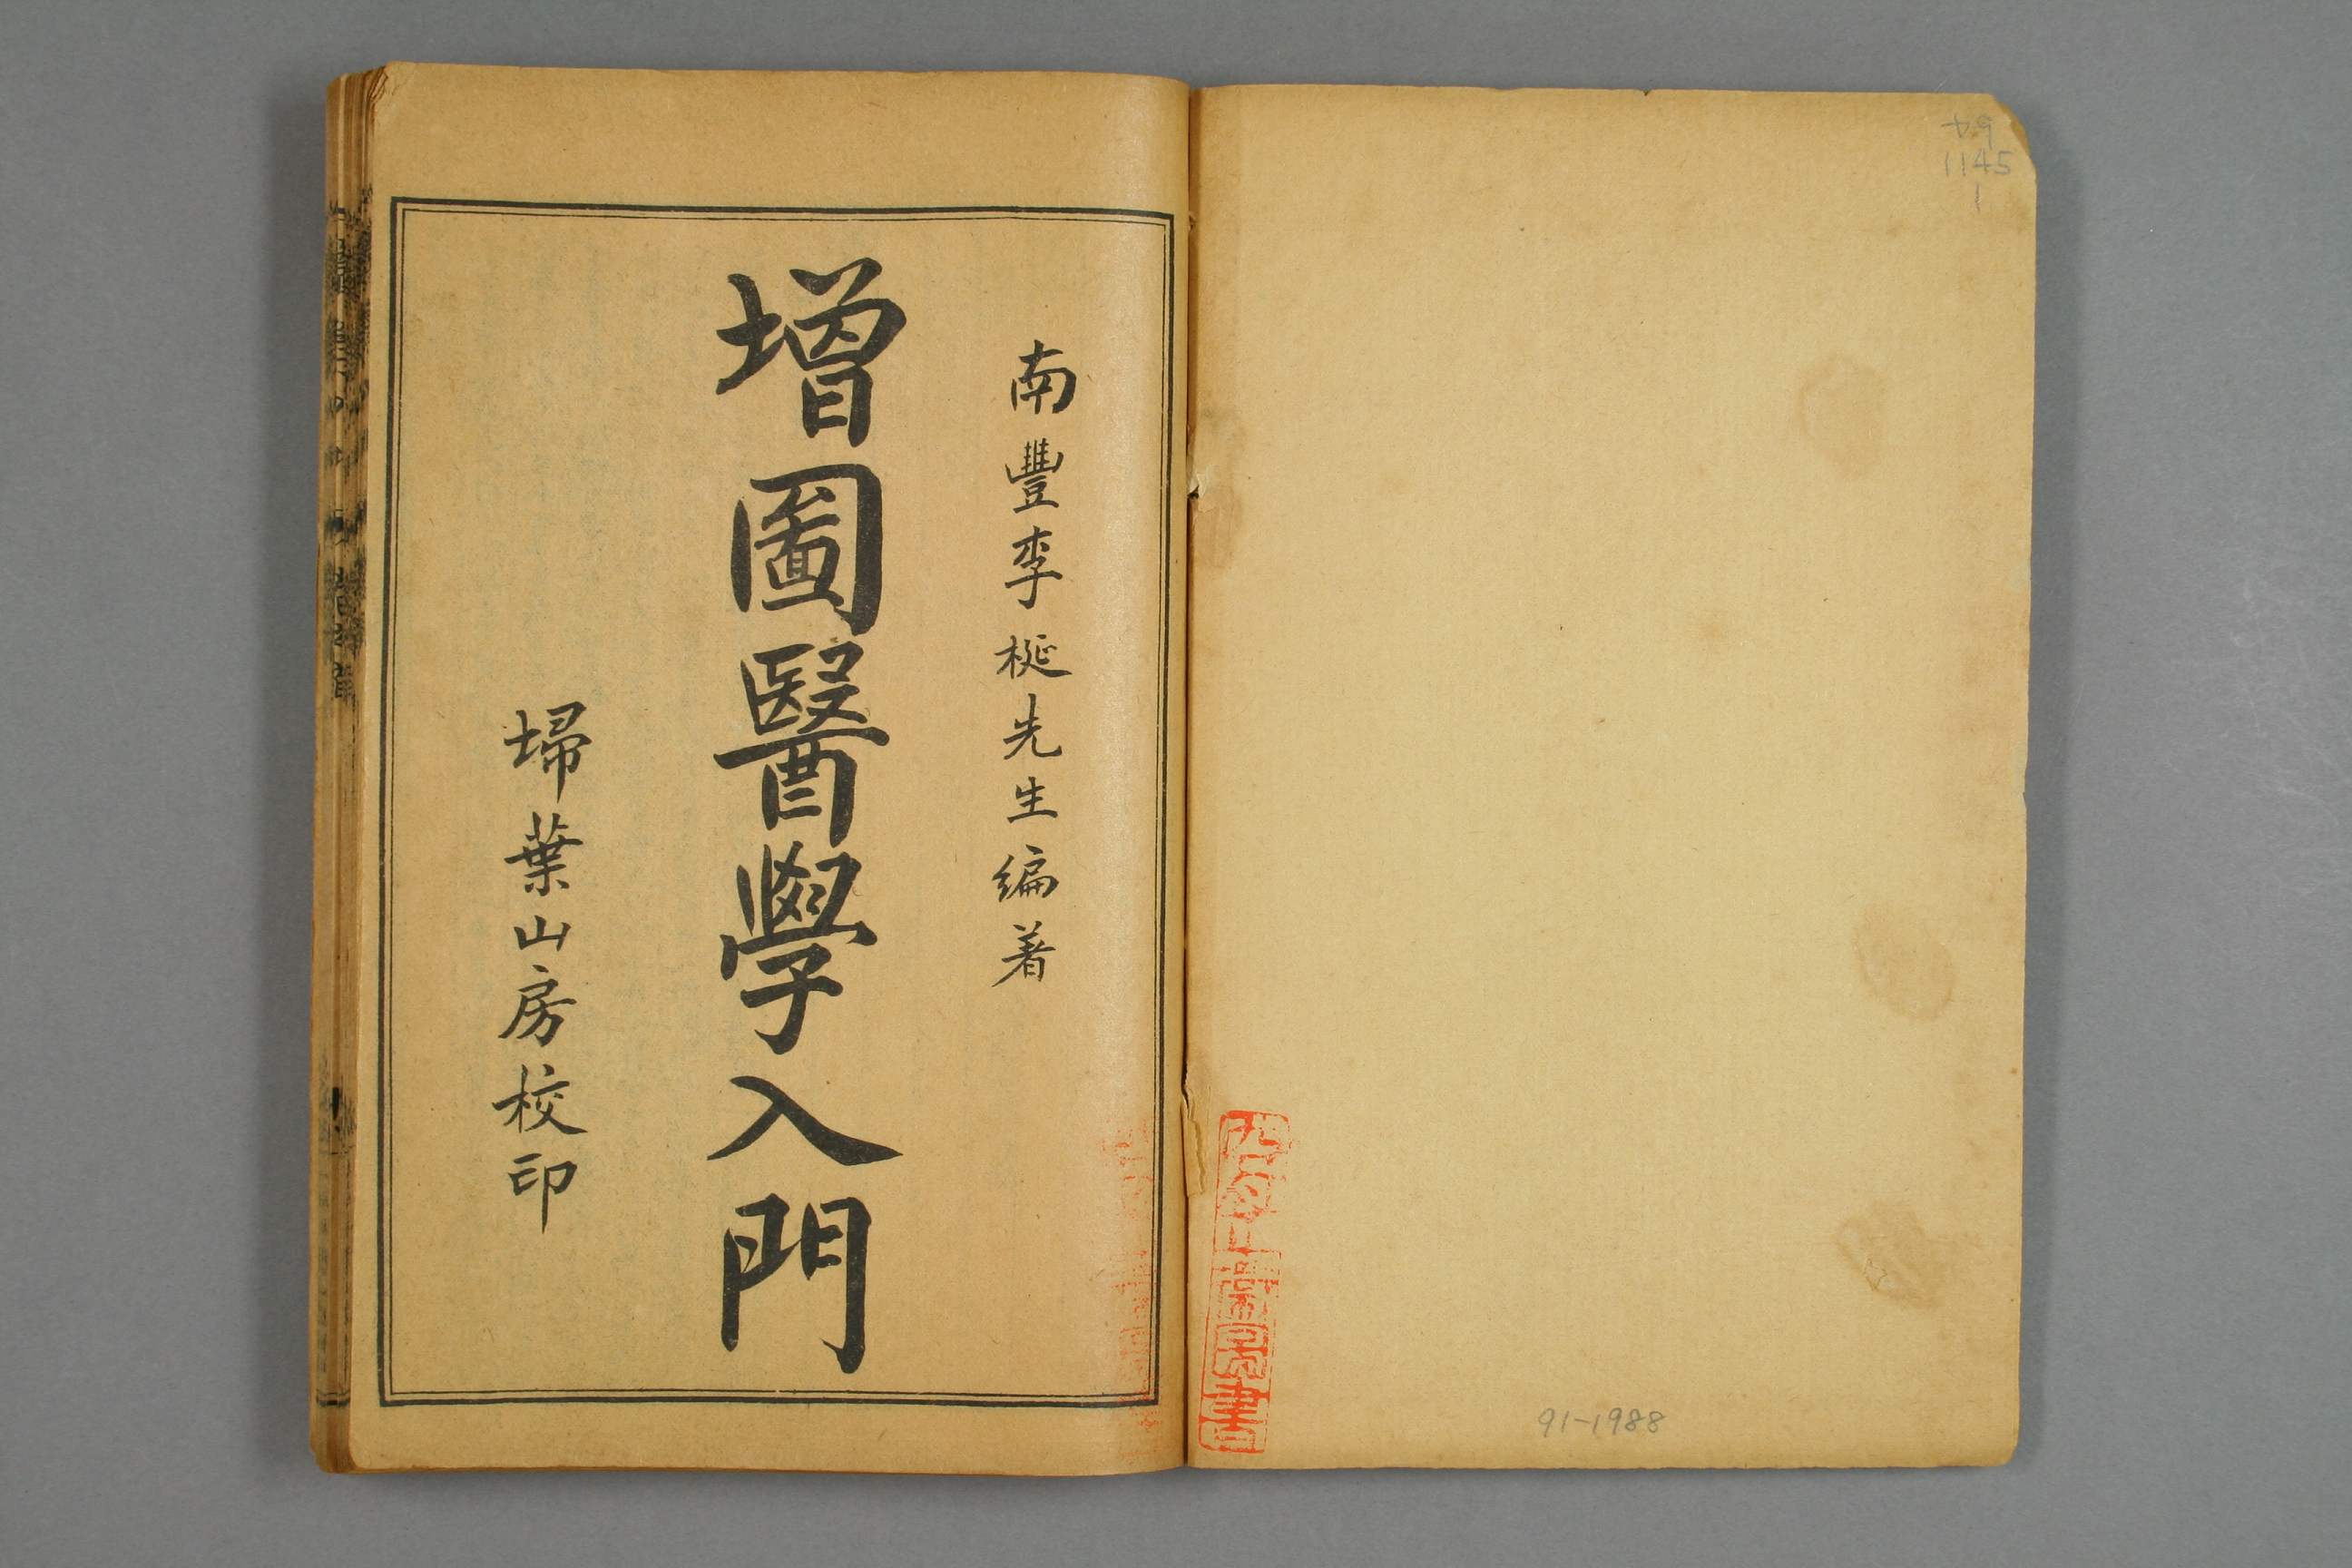 南豐李梴先生編著
增圖醫學入門
埽葉山房校印
1145
1
91-1988